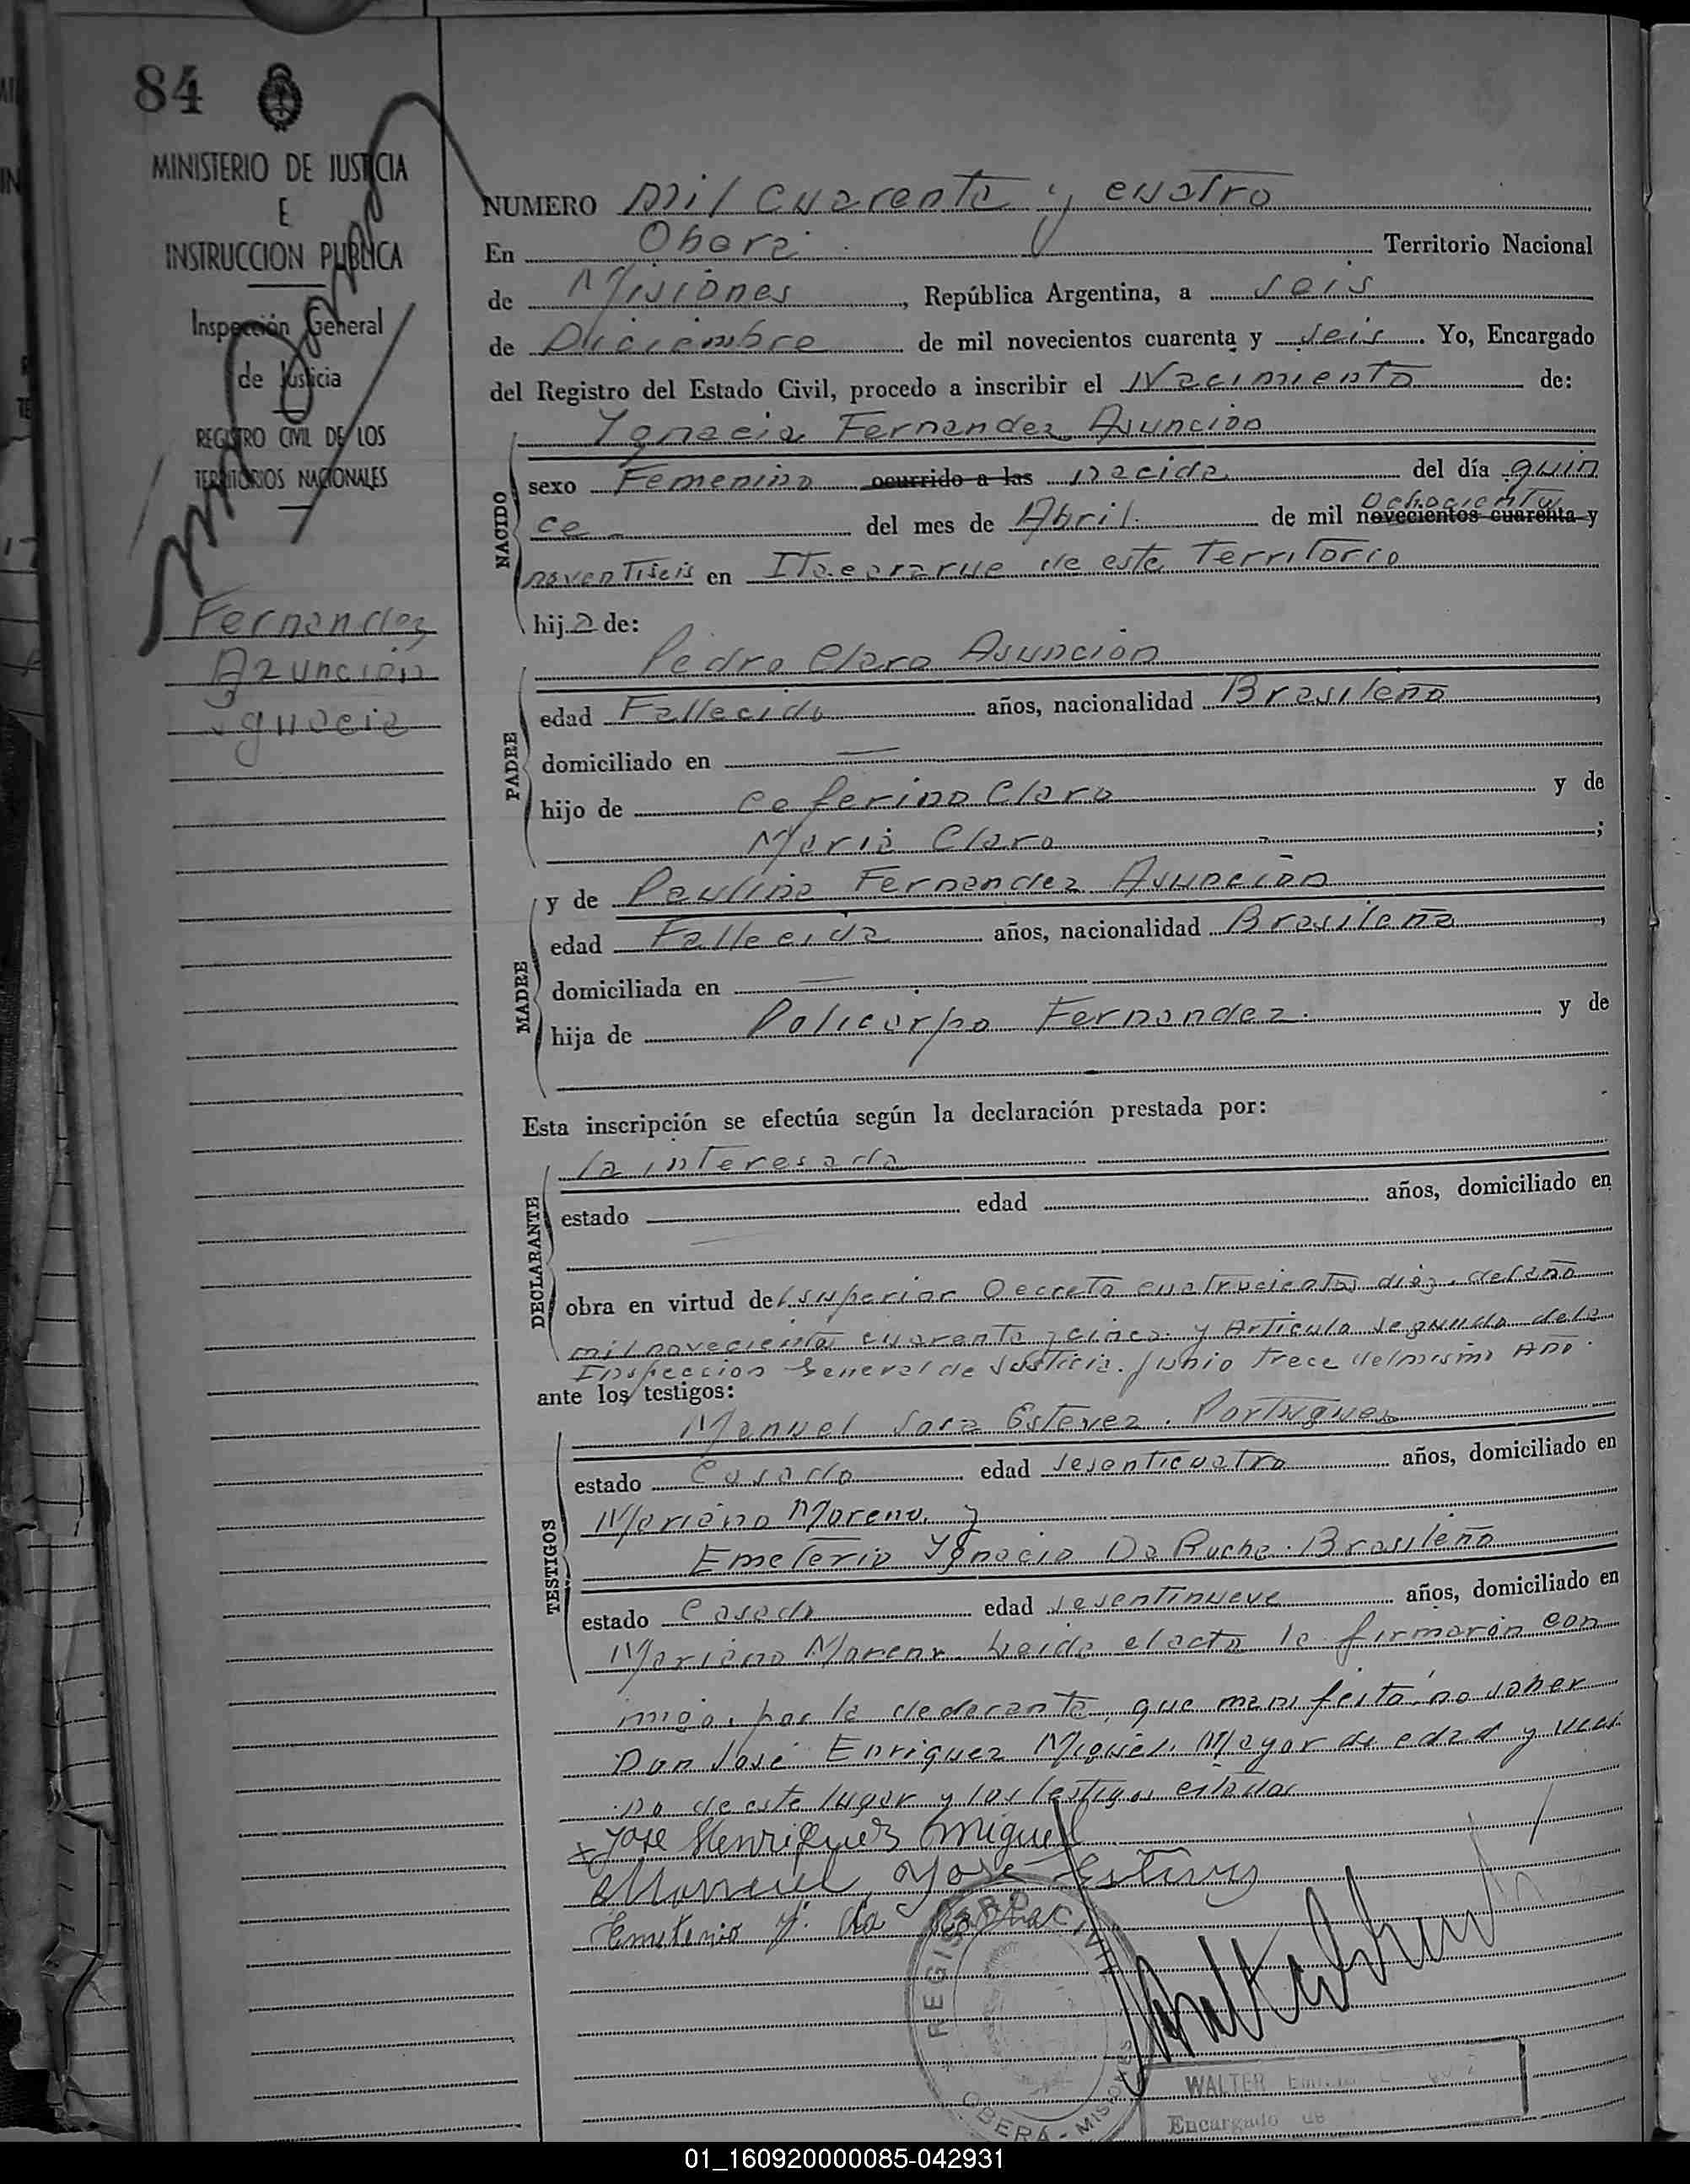 84
MINISTERIO DE JUSTICIA
E
INSTRUCCION PUBLICA
Inspección General
de Justicia
REGISTRO CIVIL DE LOS
TERRITORIOS NACIONALES
Fernandez
Azunción
Ygnacia
NUMERO mil cuarenta y cuatro
En Obera Territorio Nacional
de Misiones, República Argentina, a seis
de Diciembre de mil novecientos cuarenta y seis. Yo, Encargado
del Registro del Estado Civil, procedo a inscribir el Nacimiento de:
Ygnacia Fernandez Asunción
NACIDO
sexo Femenino ocurrido a las nacida del día quin
ochocientos
ce del mes de Abril de mil novecientos cuarenta y
noventiseis en Itacararue de este Territorio
hija de:
PADRE
Pedro Claro Asunción
edad Fallecido años, nacionalidad Brasileño,
domiciliado en —
hijo de Ceferino Claro y de
Maria Claro;
MADRE
y de Paulina Fernandez Asunción
edad Fallecida años, nacionalidad Brasileña,
domiciliada en —
hija de Policarpo Fernandez. y de
Esta inscripción se efectúa según la declaración prestada por:
DECLARANTE
la interesada
estado edad años, domiciliado en
obra en virtud del superior Decreto cuatrucientos diez del año
mil novecientos cuarenta y cinco y Articulo segundo de la
Inspeccion General de Justicia. Junio trece del mismo Año.
ante los testigos:
TESTIGOS
Manuel Jose Estevez. Portugues
estado Casado edad sesenticuatro años, domiciliado en
Mariano Moreno. y
Emeterio Ygnacio Da Rocha. Brasileño
estado Casado edad sesentinueve años, domiciliado en
Mariano Moreno. Leida el acta la firmarón con
migo, por la declarante, que manifestó no saber
Don José Enriquez Miguel. Mayor de edad y veci
no de este lugar y los testigos citados
x Jose Henriquez Miguel
Manuel Jose Estevez
Emeterio Y. da Rocha
REGISTRO CIVIL
OBERA - MISIONES
WALTER
Encargado de
01_160920000085-042931